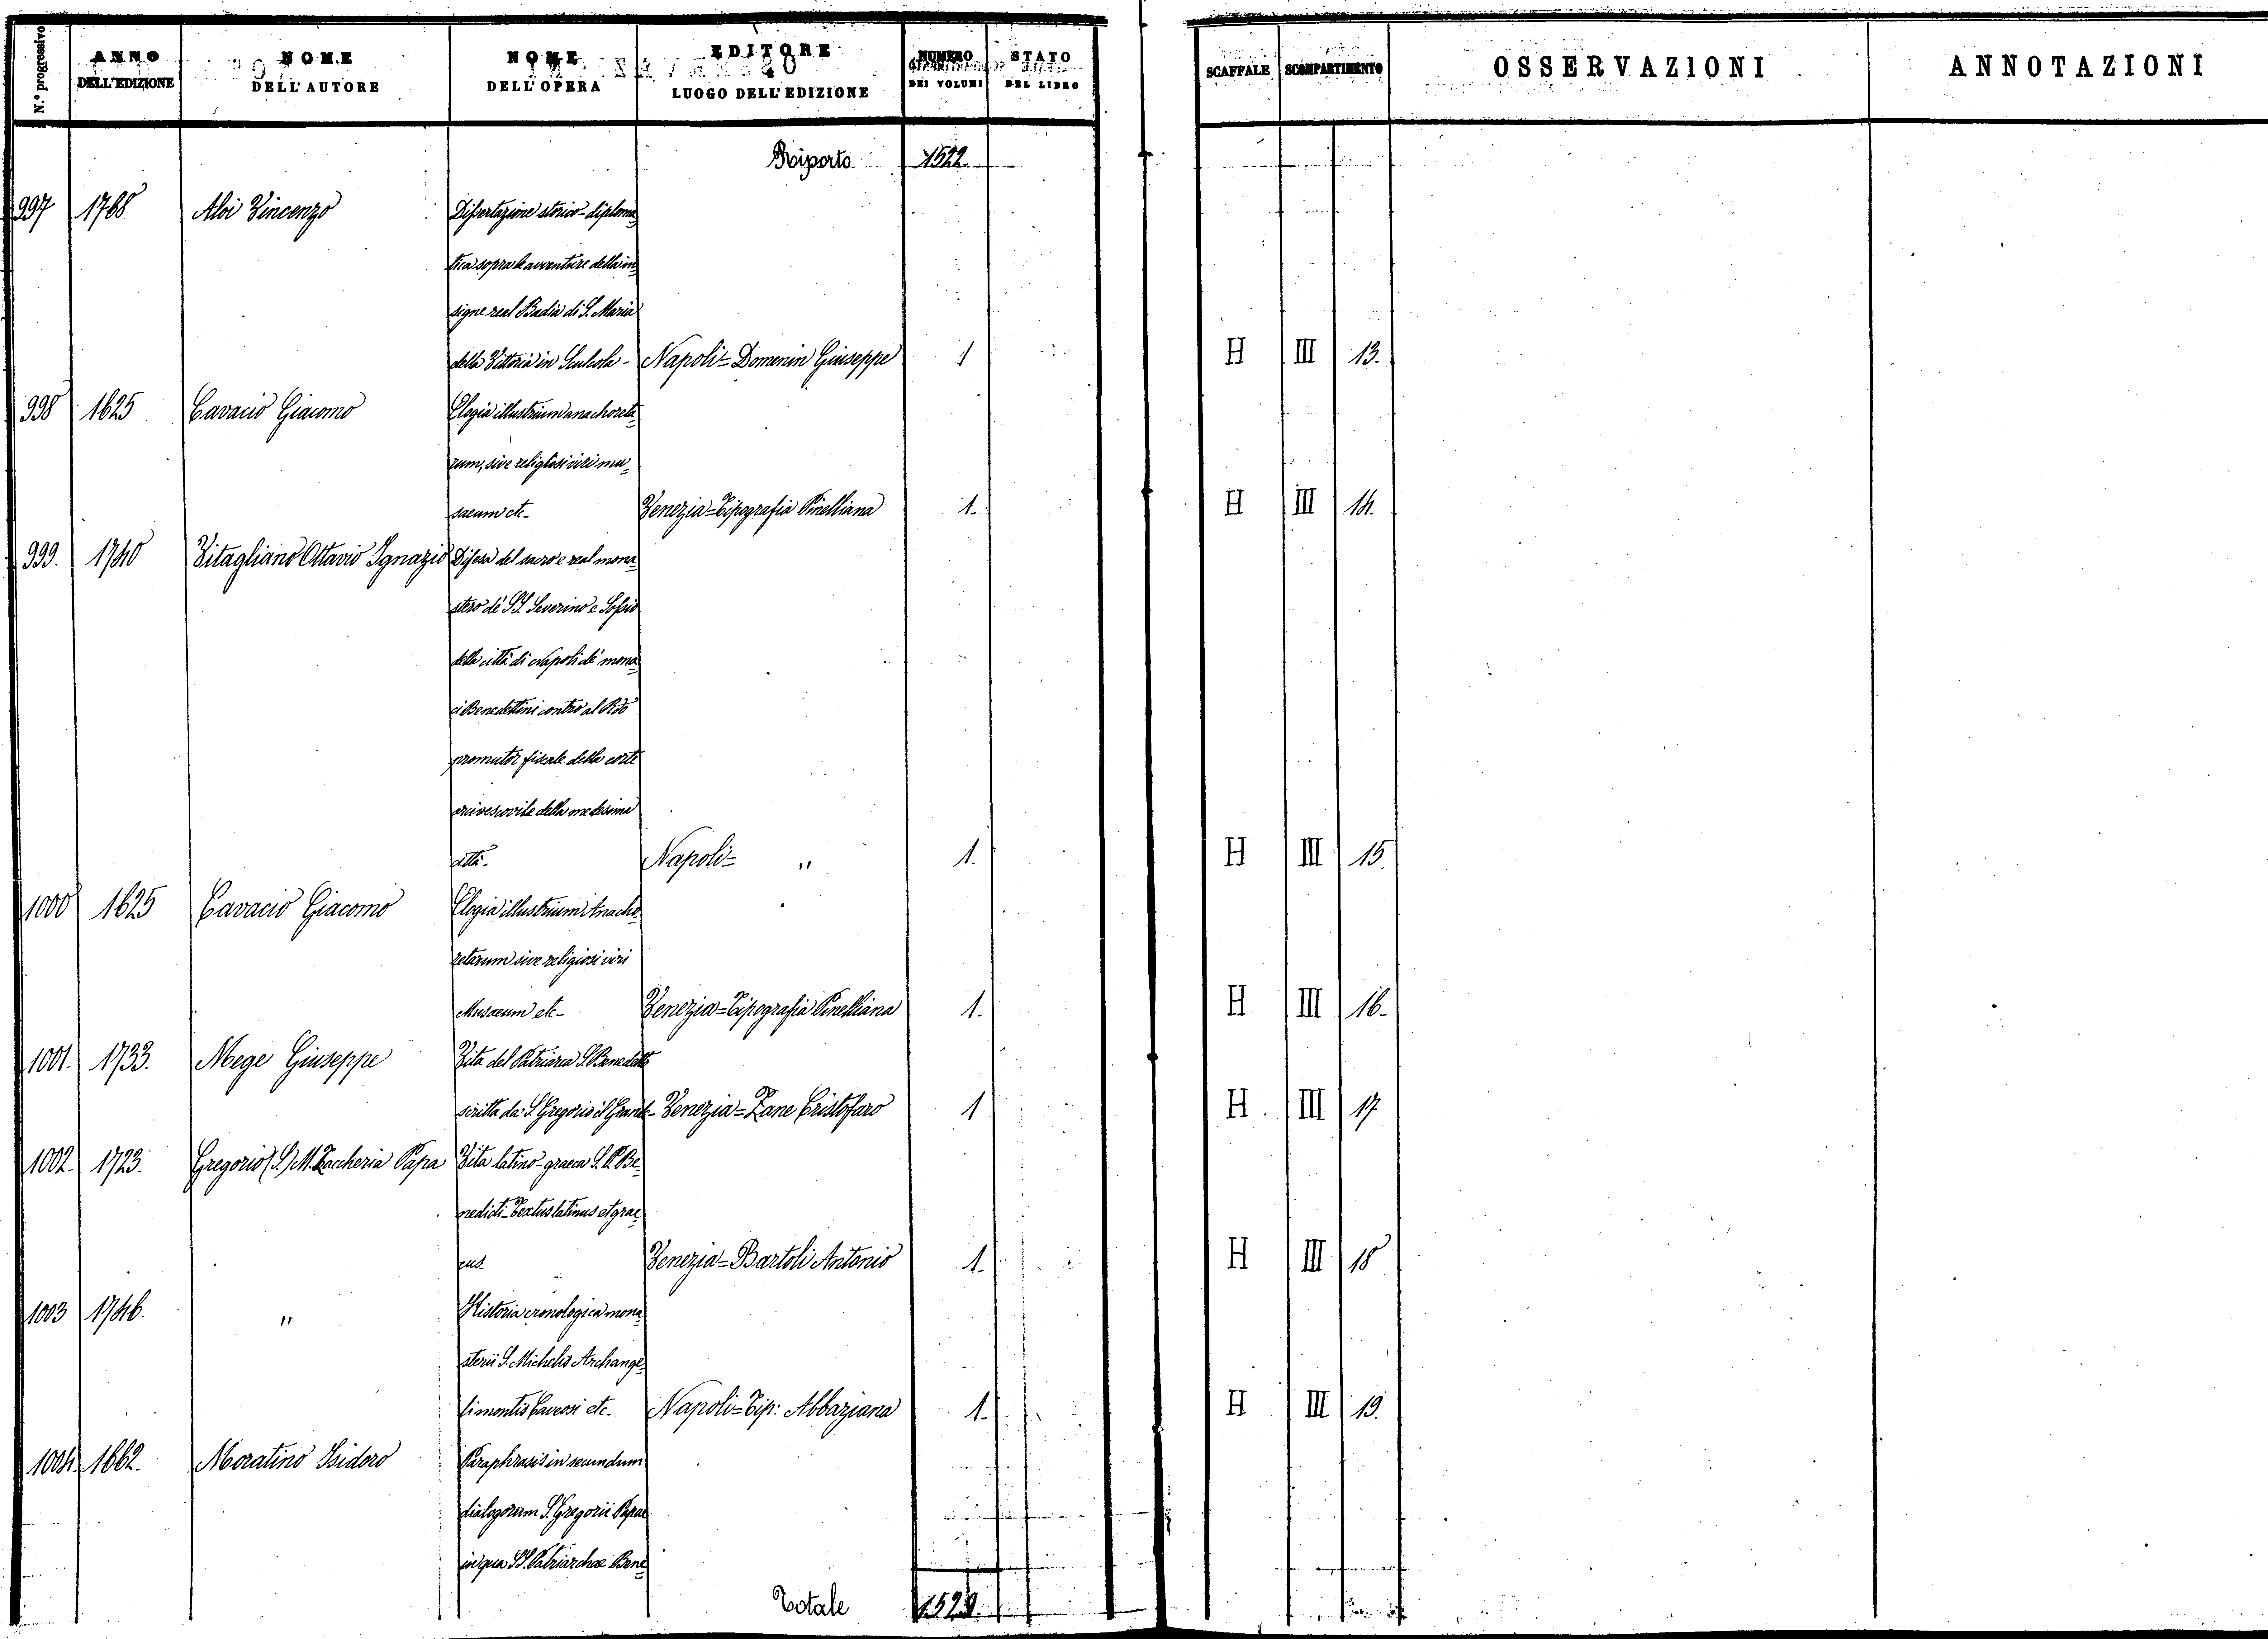 N.° progressivo | ANNO DELL'EDIZIONE | NOME DELL'AUTORE | NOME DELL'OPERA | EDITORE LUOGO DELL'EDIZIONE | NUMERO DEI VOLUMI | STATO DEL LIBRO | SCAFFALE | SCOMPARTIMENTO | OSSERVAZIONI | ANNOTAZIONI
Riporto 1522
997 1768 Aloi Vincenzo Dissertazione storico-diploma=
tica sopra le avventure della in=
signe real Badia di S. Maria
della Vittoria in Scurcola - Napoli = Domenin Giuseppe 1 H III 13.
998 1625 Cavacio Giacomo Elogia illustrium anachoreta=
rum, sive religiosi viri mu=
saeum etc- Venezia = Tipografia Pinelliana 1. H III 14.
999. 1740 Vitagliano Ottavio Ignazio Difesa del sacro e real mona=
stero de' SS. Severino e Sossio
della città di Napoli de' mona=
ci Benedettini contro al Rdo
promutor fiscale della corte
arcivescovile della medesima
città- Napoli = " 1. H III 15.
1000 1625 Cavacio Giacomo Elogia illustrium Anacho=
retarum sive religiosi viri
Musaeum etc- Venezia = Tipografia Pinelliana 1. H III 16.
1001. 1733. Mege Giuseppe Vita del Patriarca S. Benedetto
scritta da S. Gregorio il Grande- Venezia = Zane Cristofaro 1 H III 17
1002. 1723. Gregorio (S.) M. Zaccheria Papa Vita latino-graeca S. P. Be=
nedicti - Textus latinus et grae=
cus. Venezia = Bartoli Antonio 1. H III 18
1003 1746. " Historia cronologica mona=
sterii S. Michelis Archange=
li montis Caveosi etc- Napoli = Tip: Abbaziana 1. H III 19.
1004. 1662. Moratino Isidoro Paraphrasis in secundum
dialogorum S. Gregorii Papae
in qua SS. Patriarchae Bene=
Totale 1529.